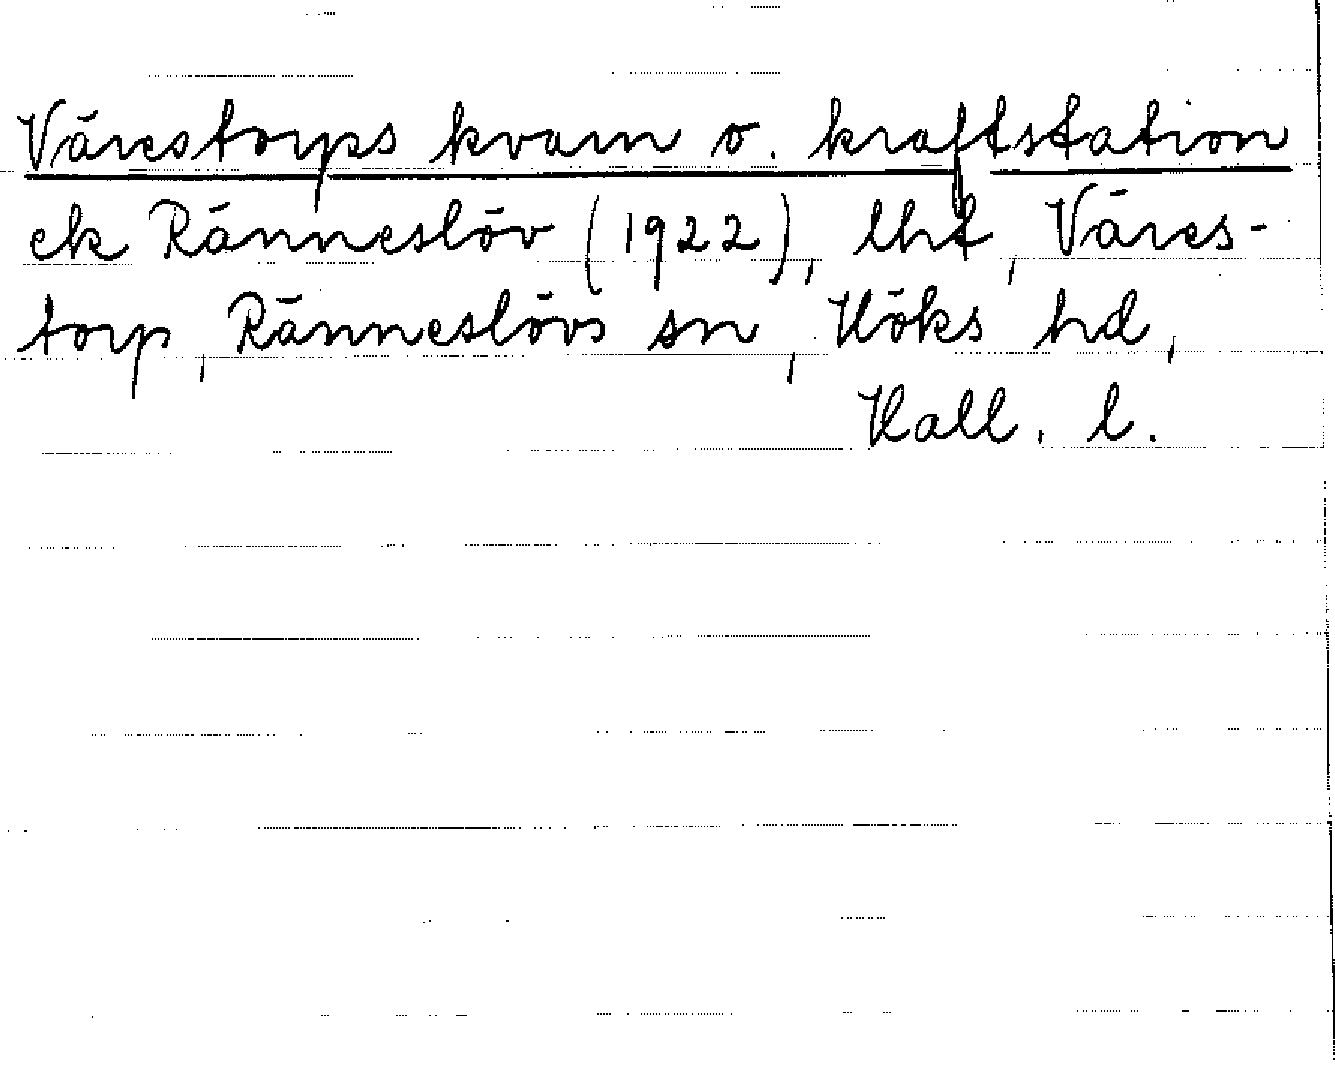 Värestorps kvarn o. kraftstation
ek Ränneslöv (1922), lht, Våres-
torp, Ränneslövs sn, Höks hd,
Hall. l.